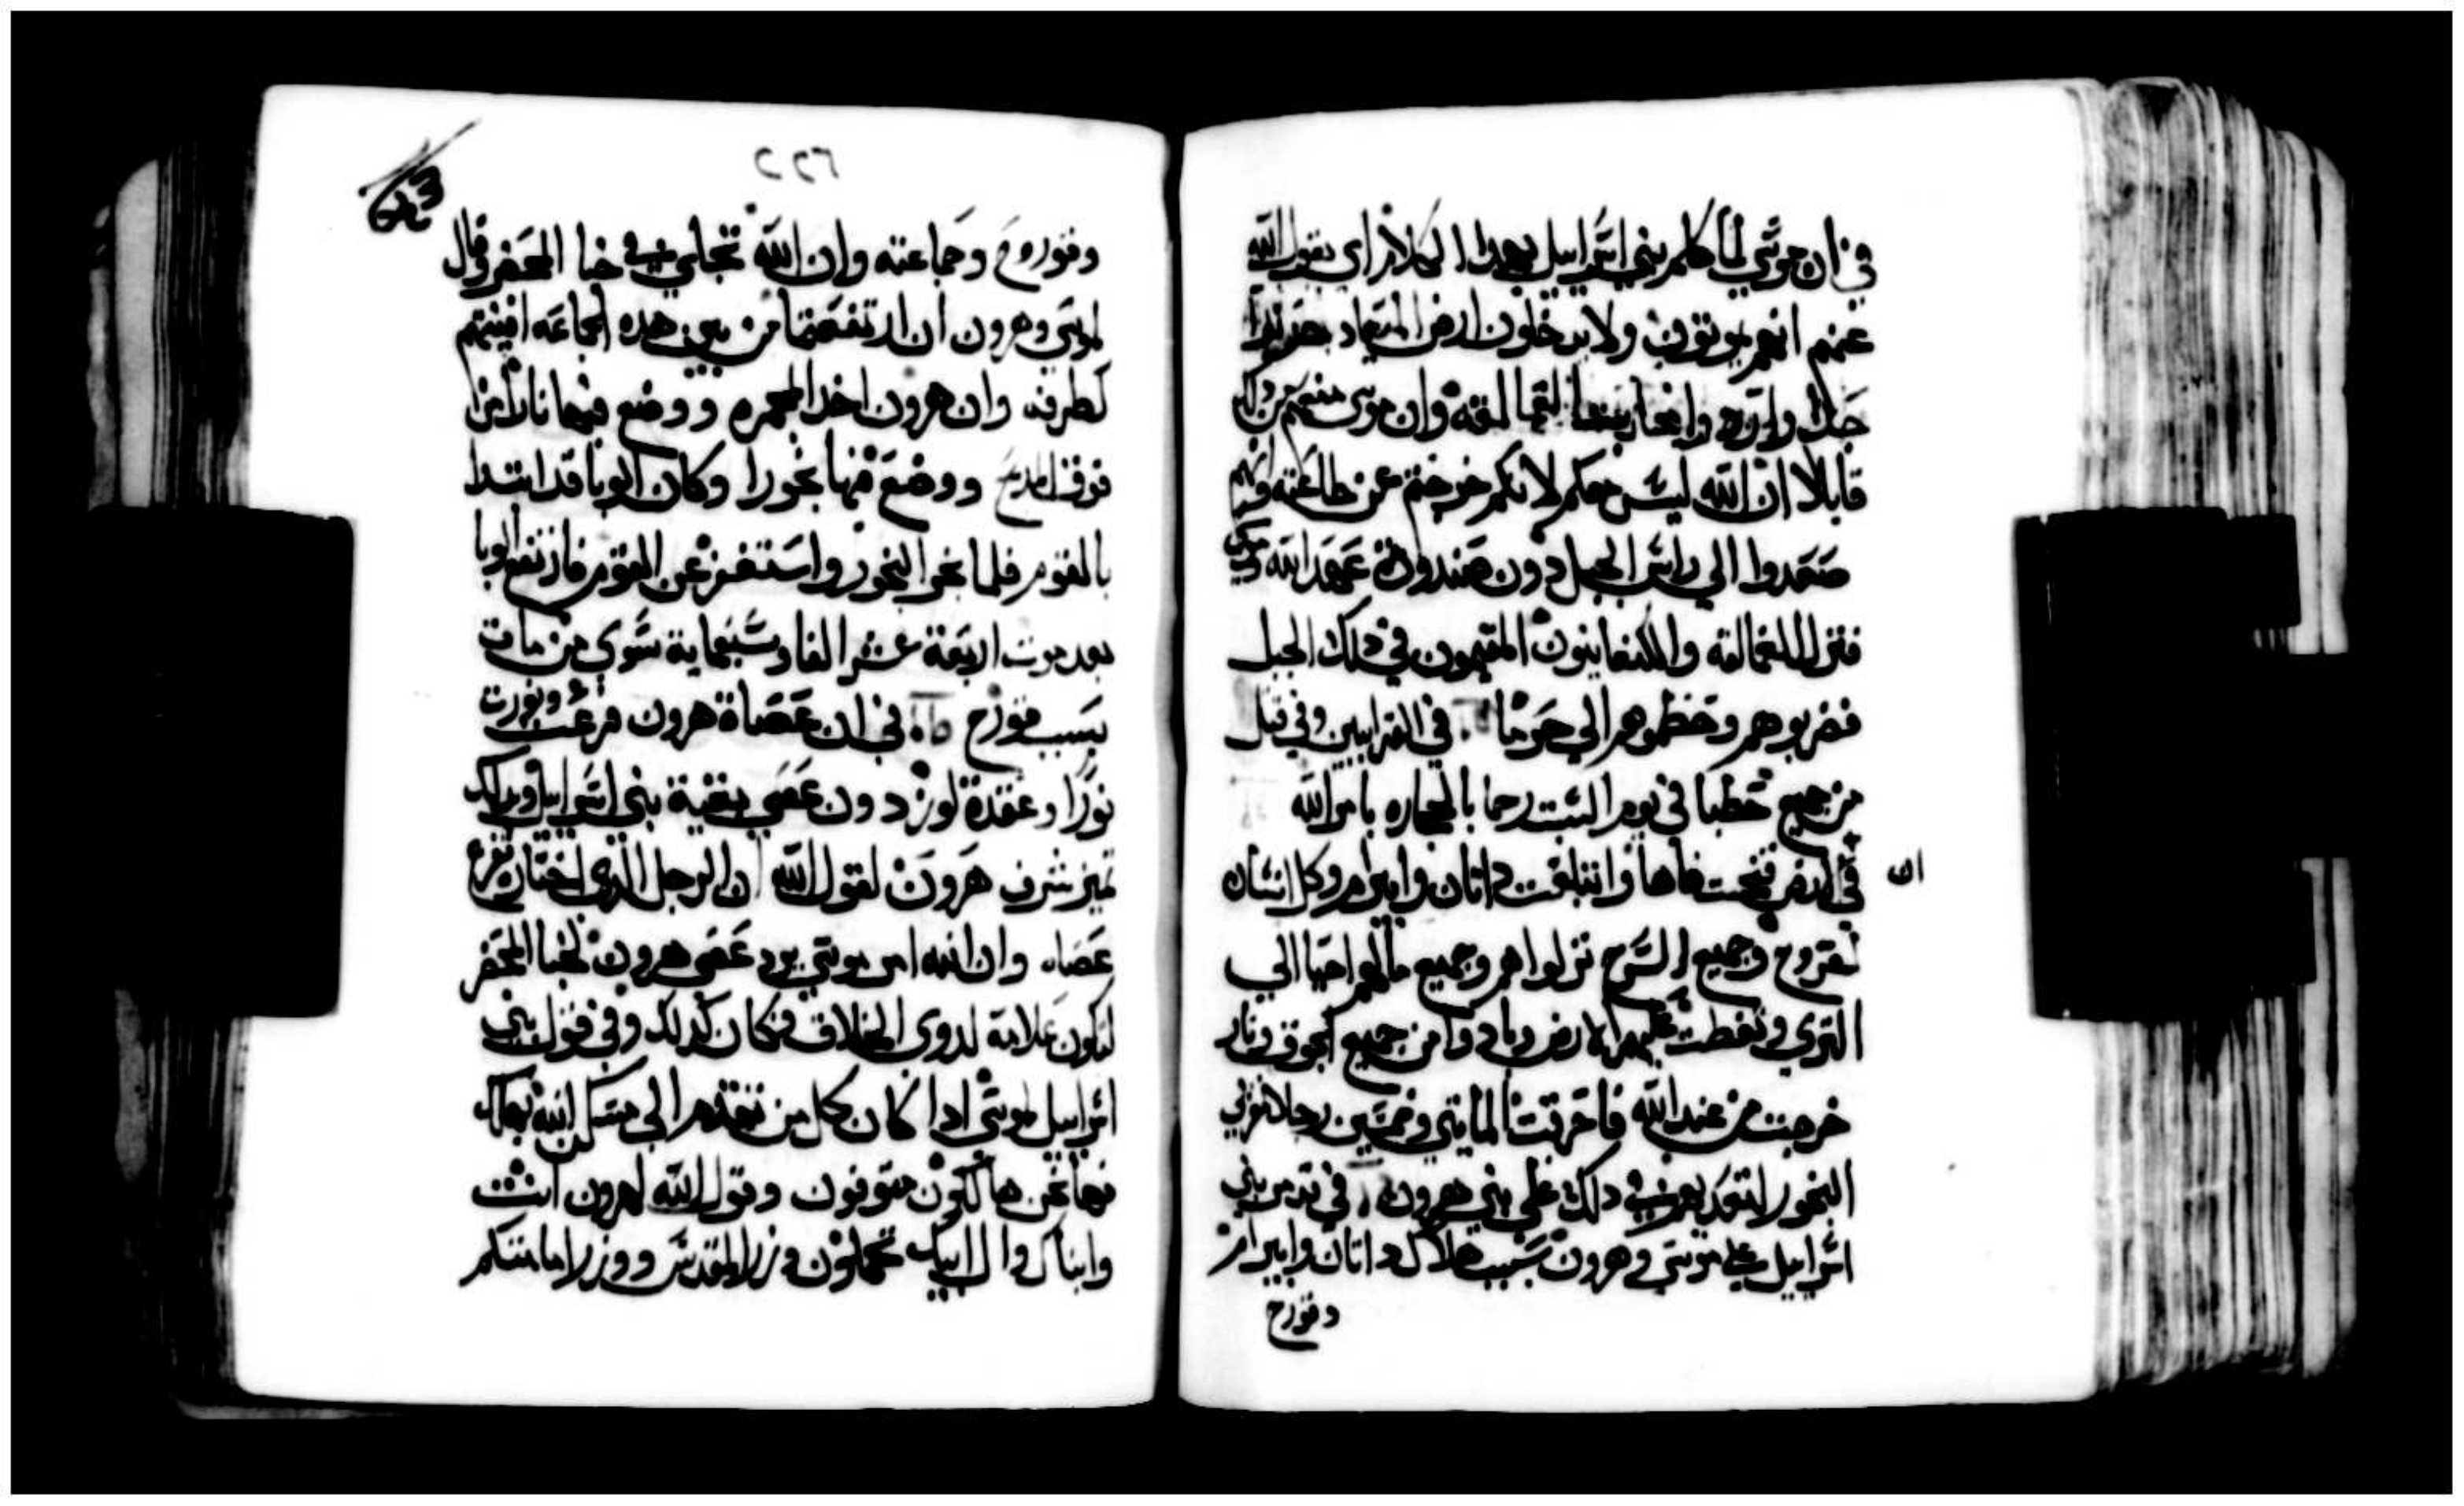 في ان موسي لما كلم بني اسراييل بهدا الكلام اي بقول الله
عنهم انهم يموتون ولا يدخلون ارض الميعاد
قايلا ان الله ليس معكم لانكم خرجتم عن طاعته وانهم
صعدوا الي راس الجبل دون صندوق عهد الله
فنزل العمالقه والكنعانيون المقيمون في دلك الجبل
فضربوهم وحطموهم الي حرما في القرابين وفي قتل
من جمع حطبا في يوم السبت رجما بالحجاره بامر الله
ان
في الارض فتحت فاها وابتلعت داتان وابيرام وكل انسان
لقروح وجميع السرح نزلوا هم وجميع مالهم احيا الي
الثري وتغطت عليهم الارض وبادوا من جميع الجوق ونار
خرجت من عند الله فاحرقت المايتي وخمسين رجلا مقربي
البخور لتعديهم في دلك علي بني هرون في تدمر بني
اسراييل علي موسي وهرون بسبب هلاك داتان وابيرام
وقورح
٢٢٦
وقورح وجماعته وان الله تجلي في خبا المحضر وقال
لموسي وهرون ان ارتفعتما من بين هده الجماعه افنيتهم
كطرفه وان هرون اخد المجمره ووضع فيها نارا من
فوق المدبح ووضع فيها بخورا وكان الوبا قد ابتدا
بالقوم فلما بخر البخور واستغفر عن القوم فارتفع الوبا
بعد موت اربعة عشر الفا وسبعماية سوي من مات
بسبب قورح في ان عصاة هرون فرعت ونورت
نورا وعقدة لوز دون عصي بقية بني اسراييل
تميز شرف هرون لقول الله ان الرجل الذي اختار تفرع
عصاه وان الله امر موسي برد عصي هرون لخبا المحضر
لتكون علامة لدوي الخلاف فكان كدلك وفي قول بني
اسراييل لموسي ادا كان كل من تقدم الي مسكن الله يهلك
فها نحن هالكون متوفون وقول الله لهرون انت
وابناك وال ابيك تحملون وزر المقدس ووزر امامتكم